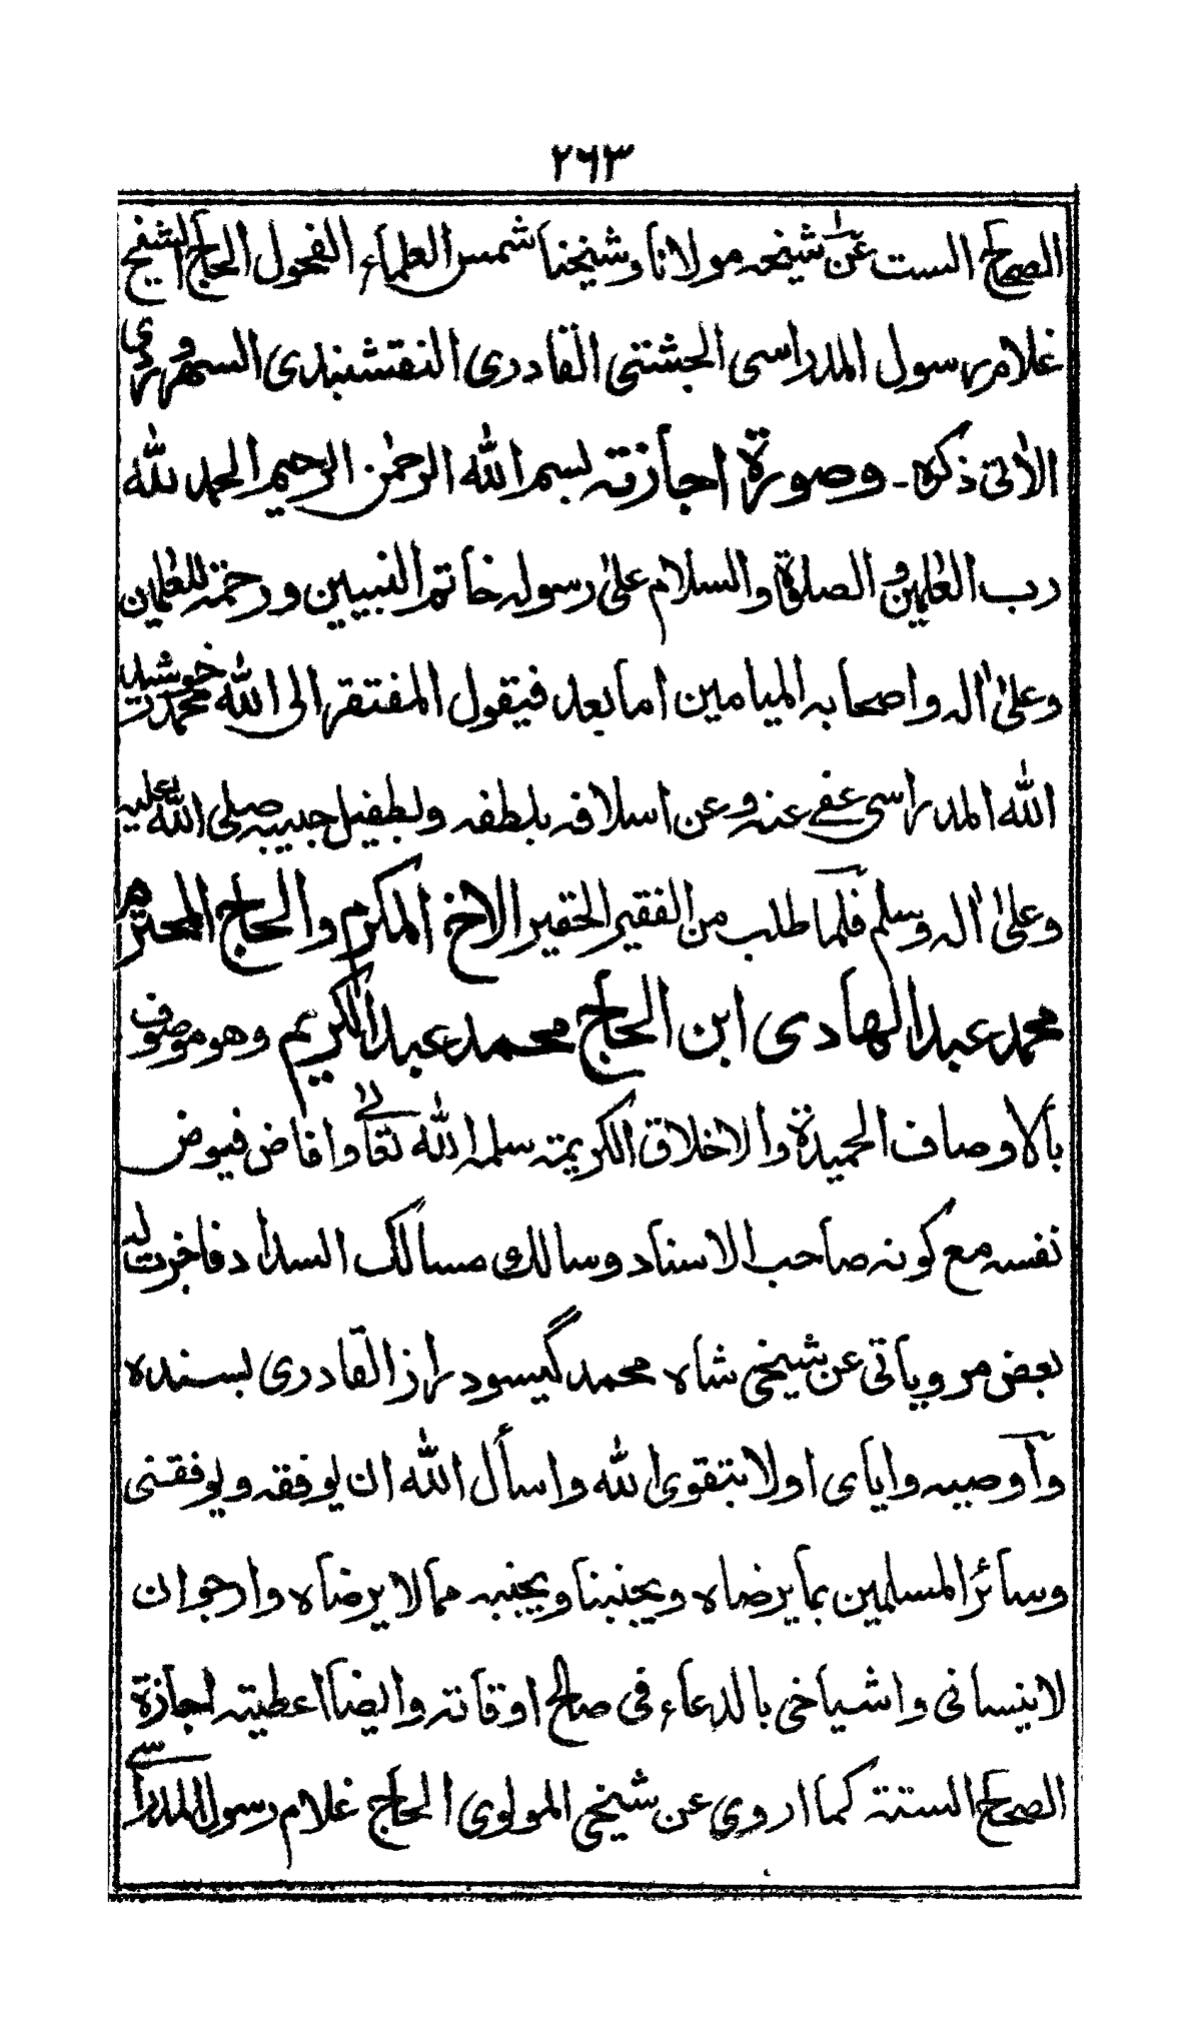 ٢٦٣
الصحاح الست عن شيخه مولانا وشيخنا شمس العلماء الفحول الحاج الشيخ
غلام رسول المدراسى الجشتى القادرى النقشبندى السهروردى
الاٰتى ذكره ـ وصورة اجازته بسم الله الرحمٰن الرحيم الحمد لله
رب العٰلمين و الصلوٰة والسلام علىٰ رسوله خاتم النبيين ورحمة للعٰلمين
وعلىٰ اٰله واصحابه الميامين اما بعد فيقول المفتقر الى الله محمد خورشيد
الله المدراسى عفى عنه وعن اسلافه بلطفه ولطفيل حبيبه صلى الله عليه
وعلىٰ اٰله وسلم فلما طلب من الفقير الحقير الاخ المكرم والحاج المحترم
محمد عبد الهادى ابن الحاج محمد عبد الكريم وهو موصوف
بالاوصاف الحميدة والاخلاق الكريمة سلمه الله تعالى وافاض فيوض
نفسه مع كونه صاحب الاسناد وسالك مسالك السداد فاخرت له
بعض مروياتى عن شيخى شاه محمد گيسودراز القادرى بسنده
وآوصيه واياى اولا بتقوى الله واسأل الله ان يوفقه ويوفقنى
وسائر المسلمين بما يرضاه ويجنبنا ويجنبه مما لا يرضاه وارجو ان
لا ينسانى واشياخى بالدعاء فى صالح اوقاته وايضا اعطيته اجازة
الصحاح الستة كما اروى عن شيخى المولوى الحاج غلام رسول المدراسى